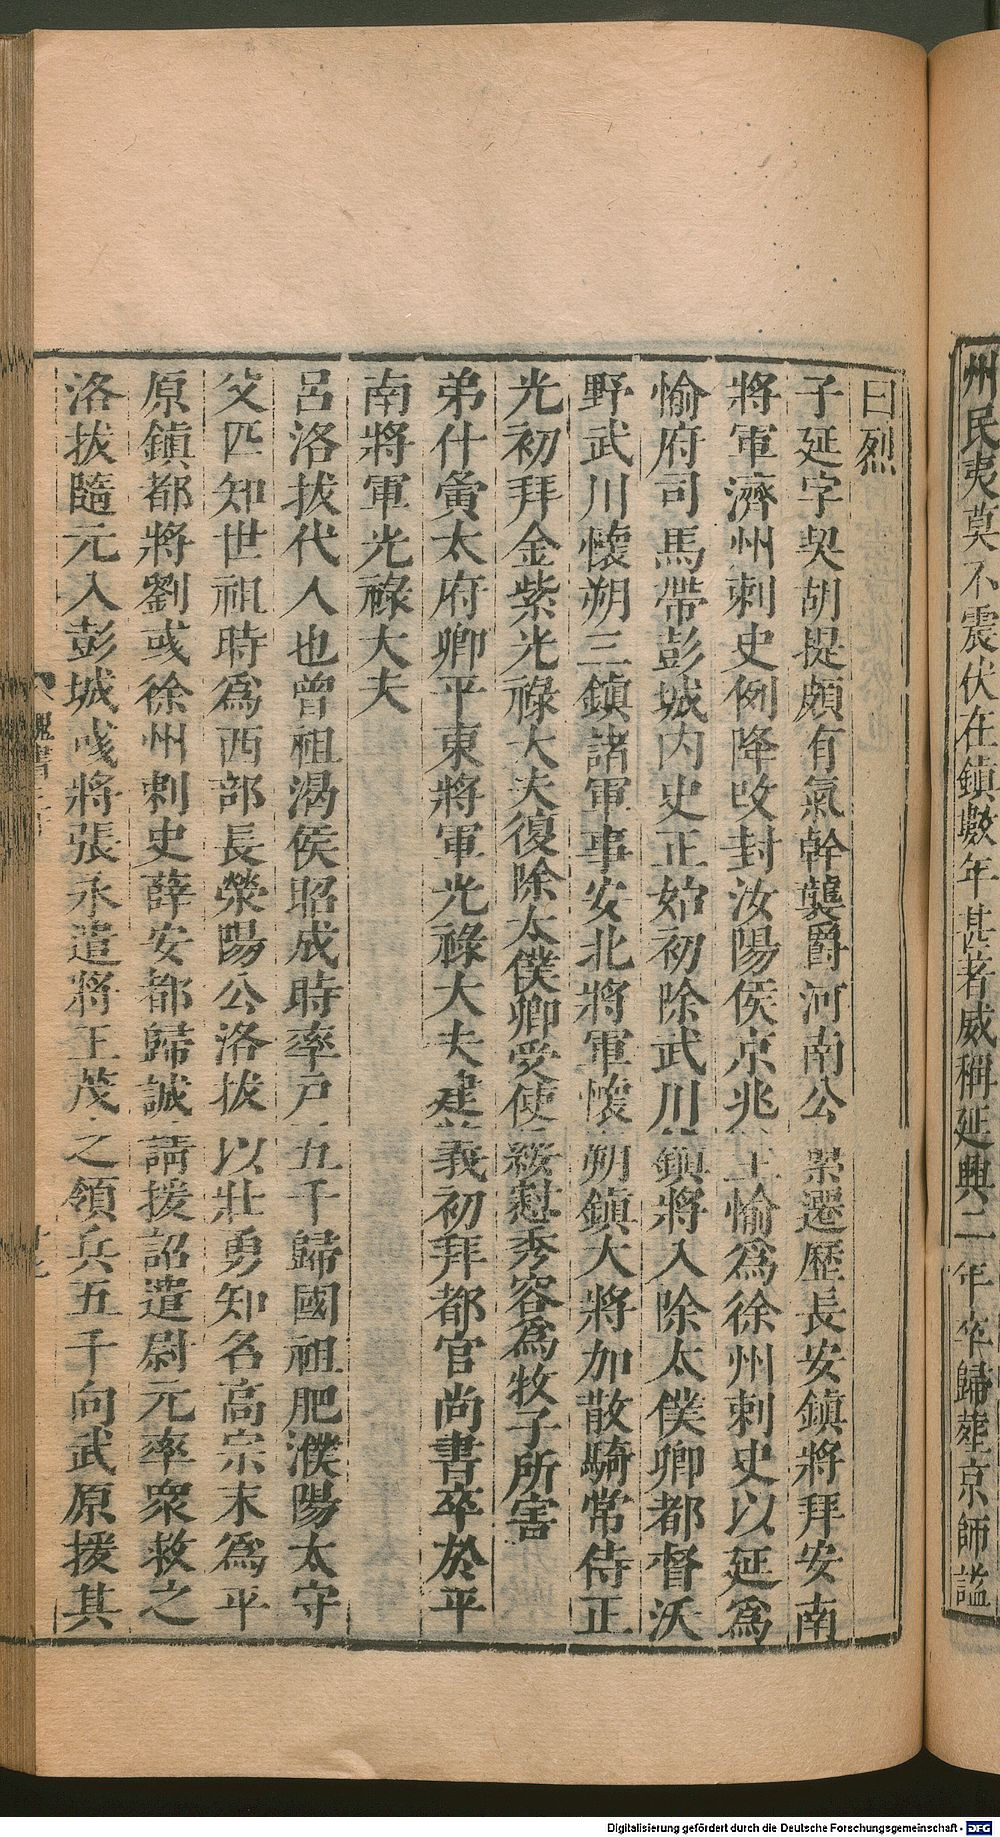 州民夷莫不震伏在鎮數年甚著威稱延興二年卒歸葬京師謚
曰烈
子延字契胡提頗有氣幹襲爵河南公累遷歷長安鎮將拜安南
將軍濟州刺史例降改封汝陽侯京兆王愉為徐州刺史以延為
愉府司馬帶彭城內史正始初除武川鎮將入除太僕卿都督沃
野武川懷朔三鎮諸軍事安北將軍懷朔鎮大將加散騎常侍正
光初拜金紫光祿大夫復除太僕卿受使綏慰秀容為牧子所害
弟什夤太府卿平東將軍光祿大夫建義初拜都官尚書卒於平
南將軍光祿大夫
呂洛拔代人也曾祖渴侯昭成時率戶五千歸國祖肥濮陽太守
父匹知世祖時為西部長滎陽公洛拔以壯勇知名高宗末為平
原鎮都將劉彧徐州刺史薛安都歸誠請援詔遣尉元率眾救之
洛拔隨元入彭城彧將張永遣將王茂之領兵五千向武原援其
魏書
Digitalisierung gefördert durch die Deutsche Forschungsgemeinschaft - DFG